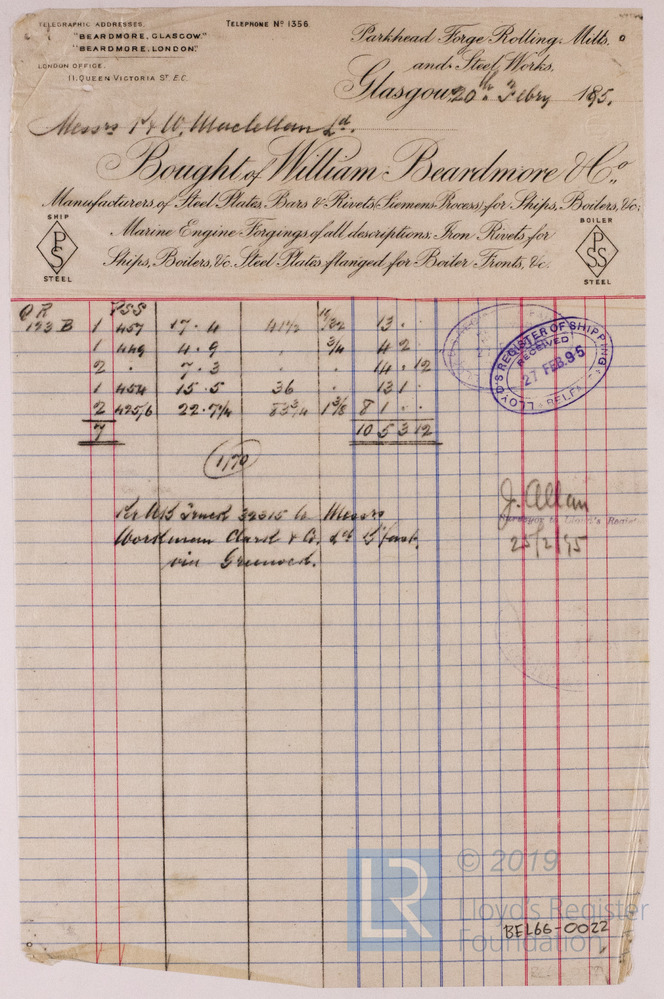 TELEGRAPHIC ADDRESSES.
"BEARDMORE, GLASGOW."
"BEARDMORE, LONDON."
LONDON OFFICE.
11, QUEEN VICTORIA ST. E.C.
TELEPHONE No 1356.
Parkhead Forge Rolling Mills,
and Steel Works,
Glasgow, 20th Febry 1895.
Messrs P & W. Maclellan Ld.
Bought of William Beardmore & Co.,
Manufacturers of Steel Plates, Bars & Rivets (Siemens Process) for Ships, Boilers, &c:
Marine Engine Forgings of all descriptions: Iron Rivets for
Ships, Boilers, &c. Steel Plates flanged for Boiler Fronts, &c.
SHIP
PS
STEEL
BOILER
PSS
STEEL
PSS
193 B 1 457 17 . 4 41 1/2 13 . .
1 449 4 . 9 3/4 4 2 .
2 . 7 . 3 . . 14 . 12
1 454 15 . 5 36 . 13 1 .
2 425/6 22 . 7 1/4 83 3/4 1 3/8 8 1 . .
7 10 5 3 12
1170
LLOYD'S REGISTER OF SHIPPING
RECEIVED
27 FEB. 95
BELFAST
Per Truck 32315 to Messrs
Workman Clark & Co. Ld B'fast.
via Greenock.
J. Allan
Surveyor to Lloyd's Register
25/2/95
LR
© 2019
Lloyd's Register
Foundation
BEL66-0022